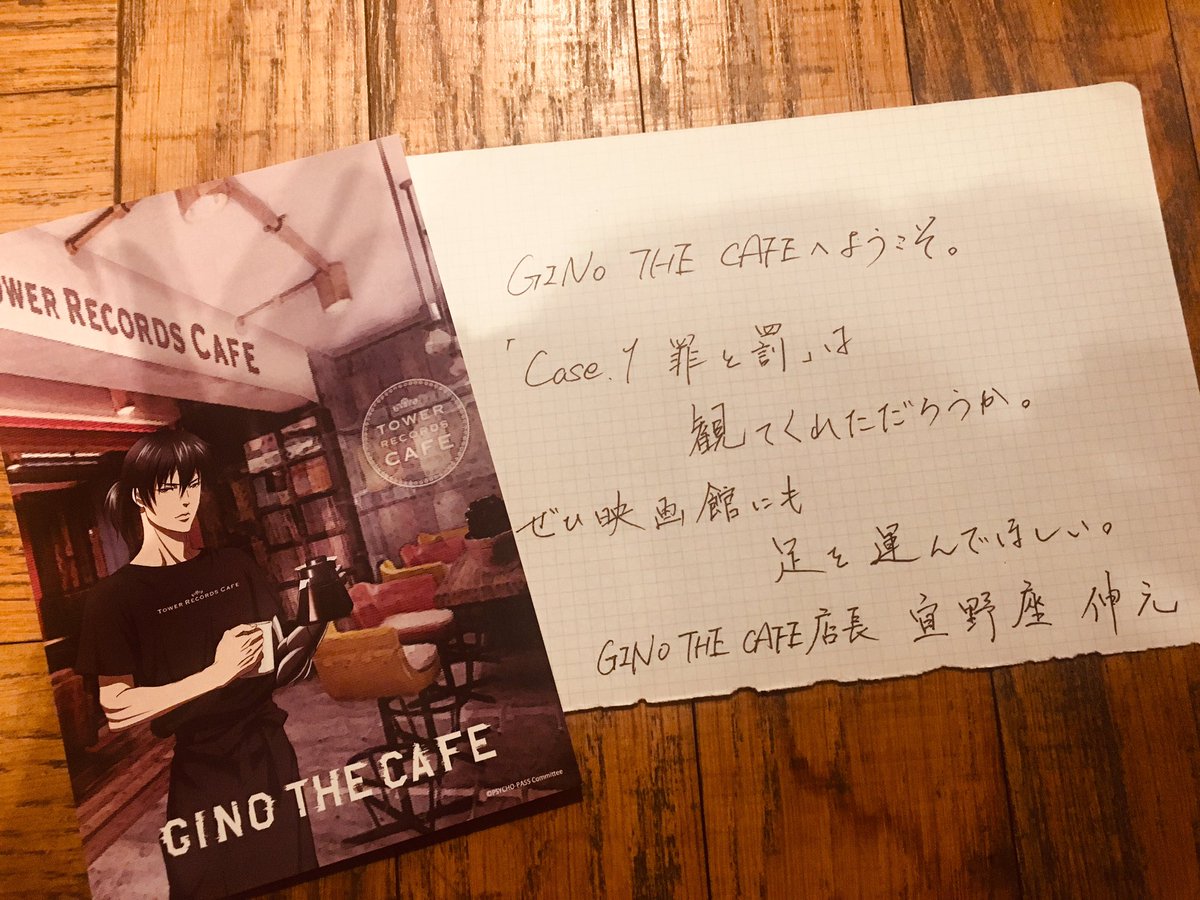 TOWER RECORDS CAFE
TOWER
RECORDS
CAFE
TOWER RECORDS CAFE
GINO THE CAFE
©PSYCHO-PASS Committee
GINO THE CAFEへようこそ。
「Case.1 罪と罰」は
観てくれただろうか。
ぜひ映画館にも
足を運んでほしい。
GINO THE CAFE店長 宜野座 伸元